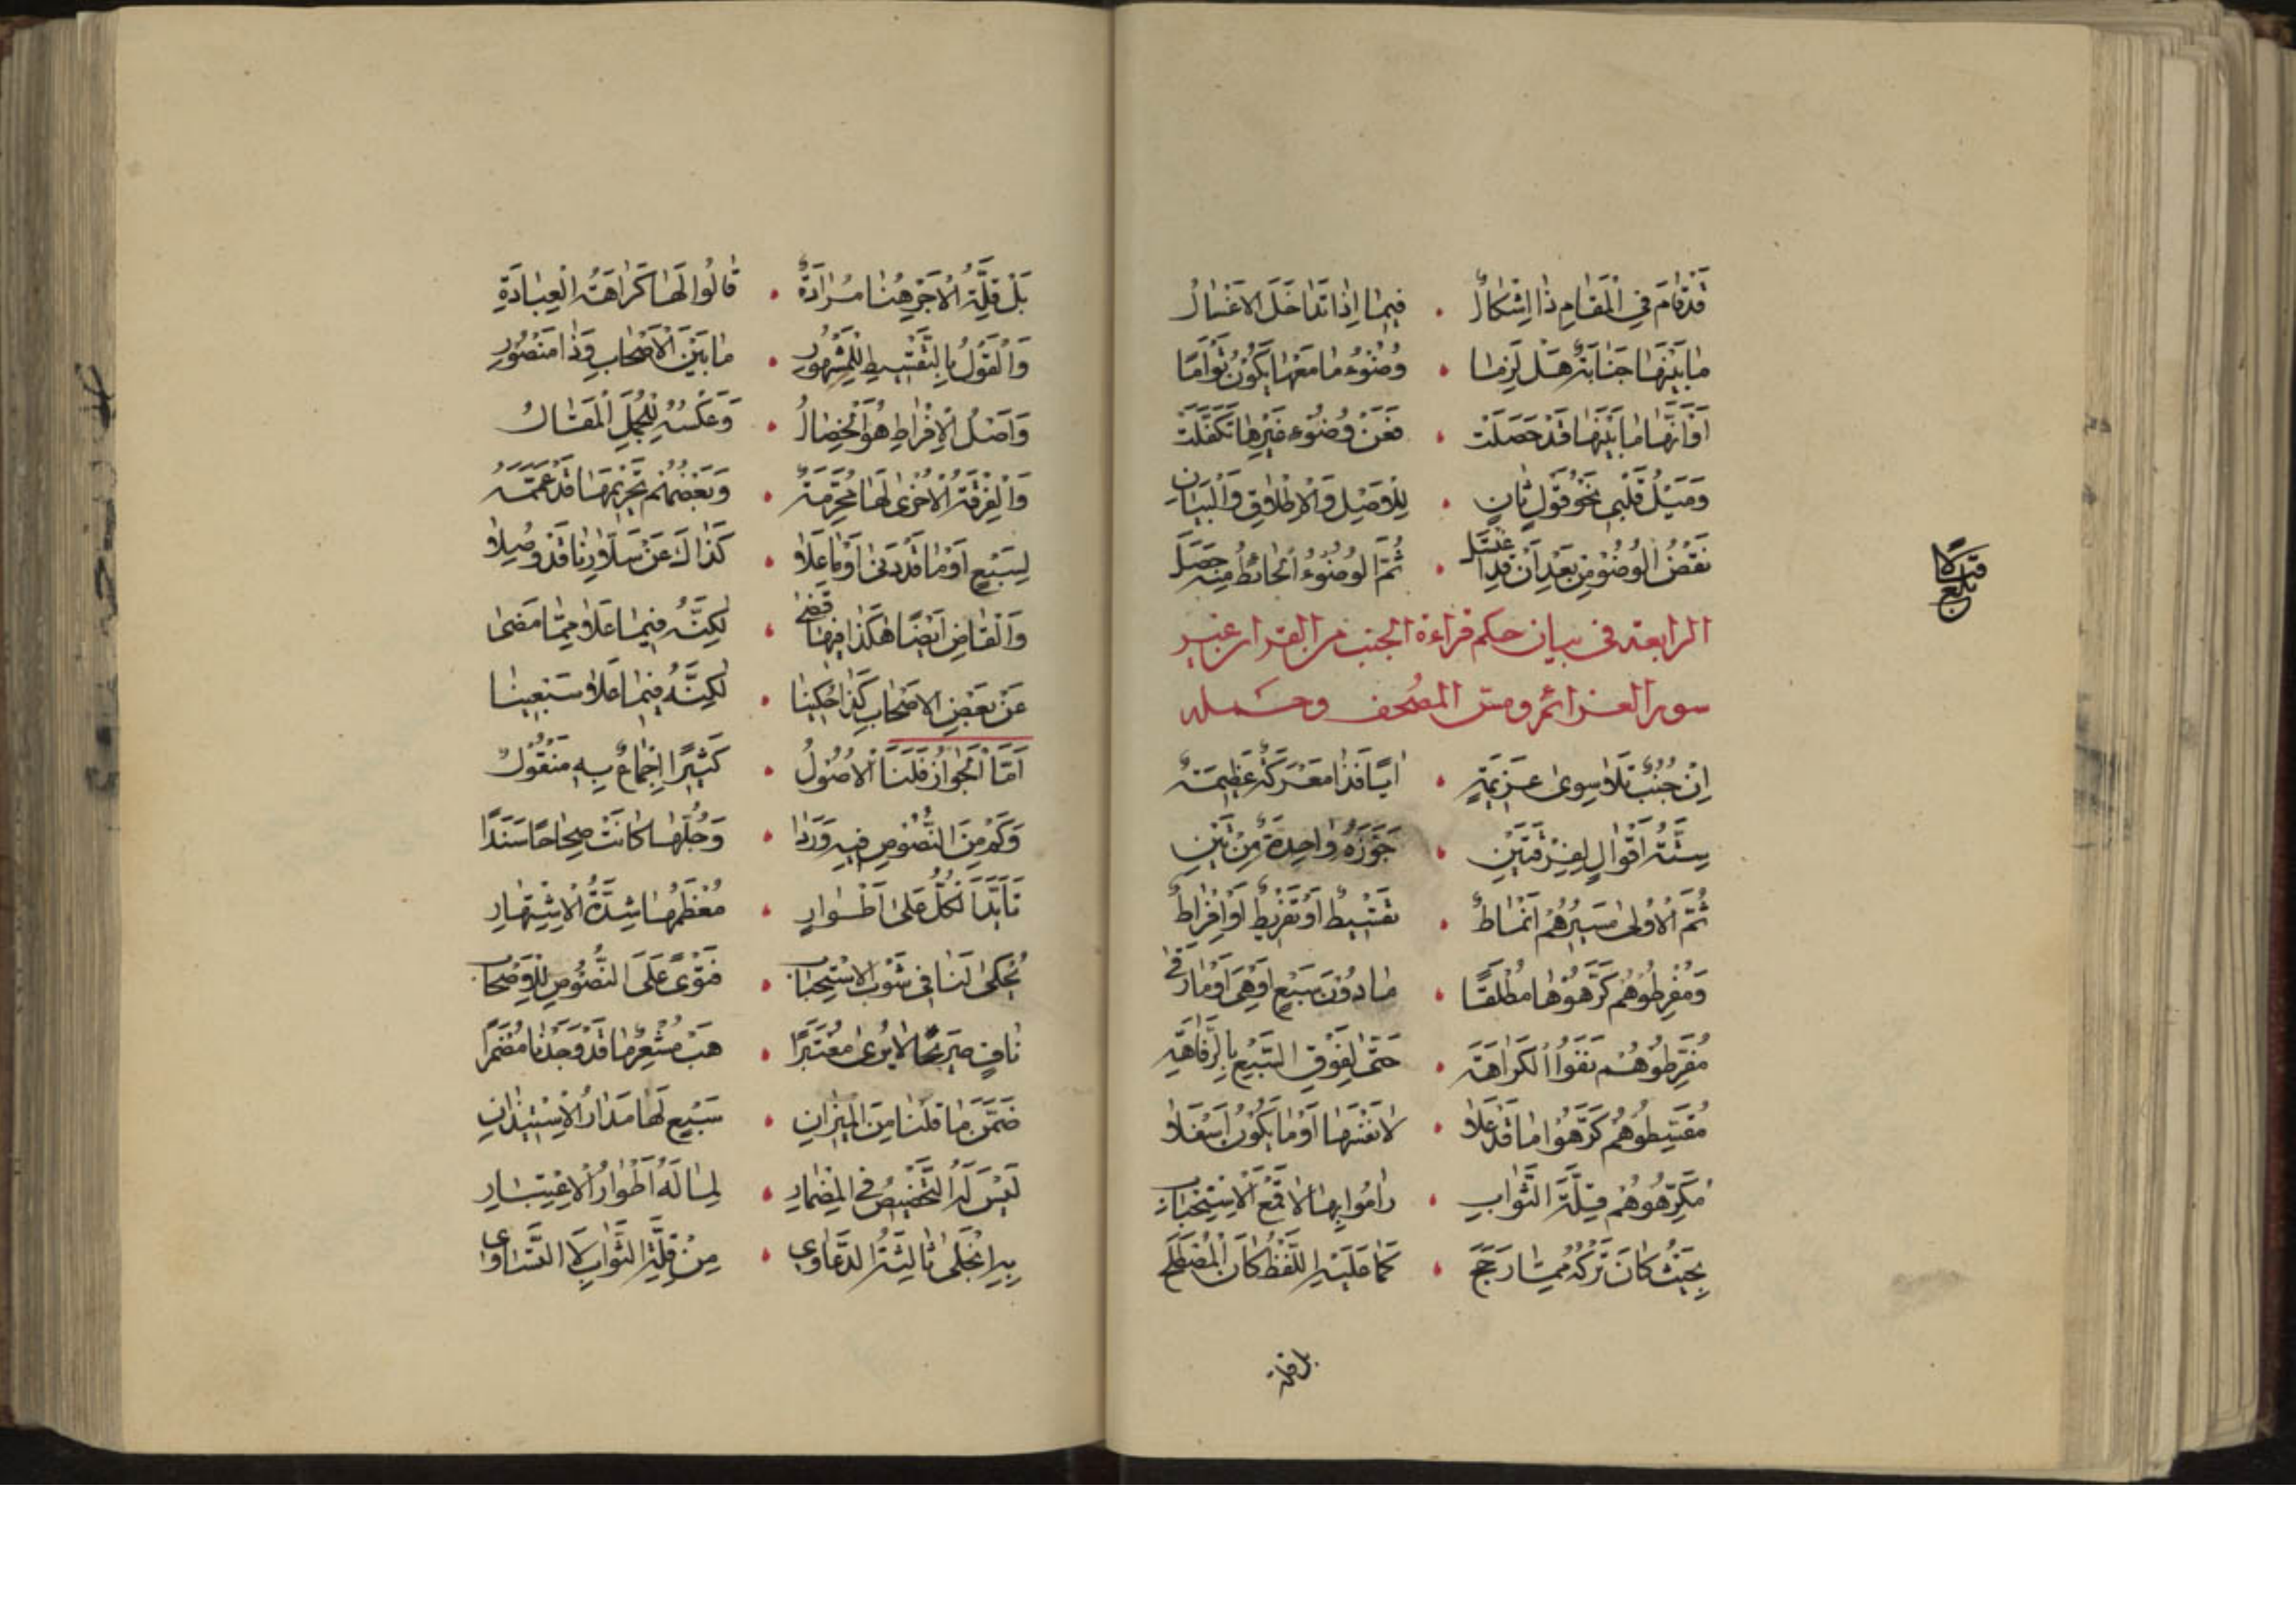 قَدْ قَامَ فِي الْمَقَامِ ذَا إِشْكَالُ • فِيمَا إِذَا تَدَاخَلَ الْأَغْسَالُ
مَا بَيْنَهَا جَنَابَةٌ هَلْ لَزِمَا • وُضُوءُ مَا مَعْهَا يَكُونُ تَوْأَمَا
أَوْ أَنَّهَا مَا بَيْنَهَا قَدْ حَصَلَتْ • فَعَنْ وُضُوءِ غَيْرِهَا تَكَفَّلَتْ
وَمَيْلُ قَلْبِي نَحْوَ قَوْلٍ ثَانٍ • لِلْأَصْلِ وَالْإِطْلَاقِ وَالْبَيَانِ
نَقْضُ الْوُضُوْ مِنْ بَعْدِ أَنْ قَدِ اغْتَسَلَ • ثُمَّ الْوُضُوءُ الْحَائِطُ مِنْهُ حَصَلَ
الرابعة في بيان حكم قراءة الجنب من القران غير
سور العزائم ومس المصحف وحمله
إِنْ جُنُبٌ تَلَا سِوَى عَزِيمَةٍ • أَيًا فَذَا مَعْرَكَةٌ عَظِيمَةٌ
سِتَّةُ أَقْوَالٍ لِفِرْقَتَيْنِ • جَوَّزَهُ وَاحِدَةٌ مِنْ تَيْنِ
ثُمَّ الْأُولَى سَيْرُهُمْ أَنْمَاطٌ • تَقْسِيطٌ أَوْ تَفْرِيطٌ أَوْ إِفْرَاطٌ
وَمُفْرِطُوهُمْ كَرَّهُوْهَا مُطْلَقًا • مَا دُوْنَ سَبْعٍ أَوْ هِيَ أَوْ مَا رَقٰى
مُفَرِّطُوهُمْ نَفَوُا الْكَرَاهَةَ • حَتَّى لِفَوْقِ السَّبْعِ بِالرَّفَاهَةِ
مُقْسِطُوهُمْ كَرَّهُوْا مَا قَدْ عَلَا • لَا نَفْسَهَا أَوْ مَا يَكُونُ أَسْفَلَا
مُكَرِّهُوهُمْ قِلَّةَ الثَّوَابِ • رَامُوا بِهَا لَا قَمْعَ الْاِسْتِحْبَابِ
بِحَيْثُ كَانَ تَرْكُهُ مِمَّا رَجَحَ • كَمَا عَلَيْهِ اللَّفْظُ كَانَ الْمُصْطَلَحَ
بل قلة
قبالا
بلغ
بَلْ قِلَّةُ الْأَجْرِ هُنَا مُرَادَةٌ • قَالُوا لَهَا كَرَاهَةُ الْعِبَادَةِ
وَالْقَوْلُ بِالتَّقْسِيطِ لِلْمَشْهُورِ • مَا بَيْنَ الْأَصْحَابِ وَذَا مَنْصُورِ
وَأَصْلُ الْإِفْرَاطِ هُوَ الْخِصَالُ • وَعَكْسُهُ لِلْجُمَلِ الْمَقَالُ
وَالْفِرْقَةُ الْأُخْرَى لَهَا مُحَرِّمَةٌ • وَبَعْضُهُمْ تَحْرِيمَهَا قَدْ عَمَّمَهُ
لِسَبْعٍ أَوْ مَا قَدْ دَنَى أَوْ مَا عَلَا • كَذَاكَ عَنْ سَلَّارِنَا قَدْ وُصِلَا
وَالْقَاضِ أَيْضًا هٰكَذَا فِيهَا قَضٰى • لٰكِنَّهُ فِيمَا عَلَا مِمَّا مَضَى
عَنْ بَعْضِ الْأَصْحَابِ كَذَا حُكِينَا • لٰكِنَّهُ فِيمَا عَلَا سَبْعِينَا
أَمَّا الْجَوَازُ فَلَنَا الْأُصُولُ • كَثِيرًا إِجْمَاعٌ بِهِ مَنْقُوْلٌ
وَكَمْ مِنَ النُّصُوصِ فِيهِ وَرَدَا • وَجُلُّهَا كَانَتْ صِحَاحًا سَنَدًا
تَأَيَّدَ الْكُلُّ عَلَى أَطْوَارٍ • مُعْظَمُهَا شِدَّةُ الْاِشْتِهَارِ
يُحْكَى لَنَا فِي ثَوْبِ الْاِسْتِحْبَابِ • فَتْوًى عَلَى النُّصُوصِ لِلْأَصْحَابِ
نَافٍ صَرِيحًا لَا يُرَى مُعْتَبَرًا • هَبْ مُشْعِرٌ مَا قَدْ وَجَدْنَا مُضْمَرًا
ضَمَّنَ مَا قُلْنَا مِنَ الْمِيزَانِ • سَبْعٍ لَهَا مَدَارُ الْاِسْتِيذَانِ
لَيْسَ لَهُ التَّخْصِيصُ فِي الْمِضْمَارِ • لِمَا لَهُ أَطْوَارُ الْاِعْتِبَارِ
بِهِ انْجَلَى ثَالِثَةُ الدَّعَاوِي • مِنْ قِلَّةِ الثَّوَابِ لَا التَّسَاوِي